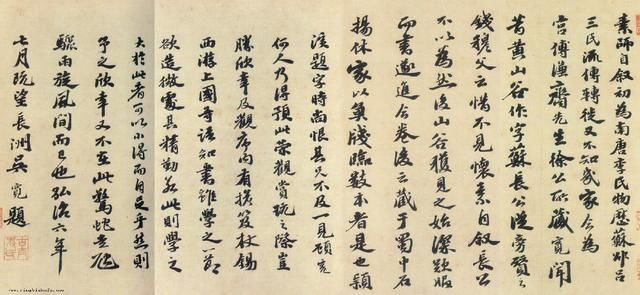 素師自叙初為南唐李氏物歷蘇邵呂
三氏流傳轉徙又不知幾家今為
宮傅謙齋先生徐公所藏寬聞
昔黃山谷作字蘇長公從旁賛之
錢穆父云惜不見懷素自叙長公
不以為然後山谷獲見之始深歎服
而書遂進今卷後云藏于蜀中石
揚休家以魚牋臨數本者是也穎
濱題字時尚恨其兄不及一見顧寬
何人乃得預此榮觀賞玩之際豈
勝欣幸及觀序內有擔笈杖錫
西游上國等語知書雖學之一節
欲造微處其精勤如此則學之
大於此者可以小得而自足乎然則
予之欣幸又不在此驚蛇走虺
驟雨旋風間而已也弘治六年
七月既望長洲吳寬題